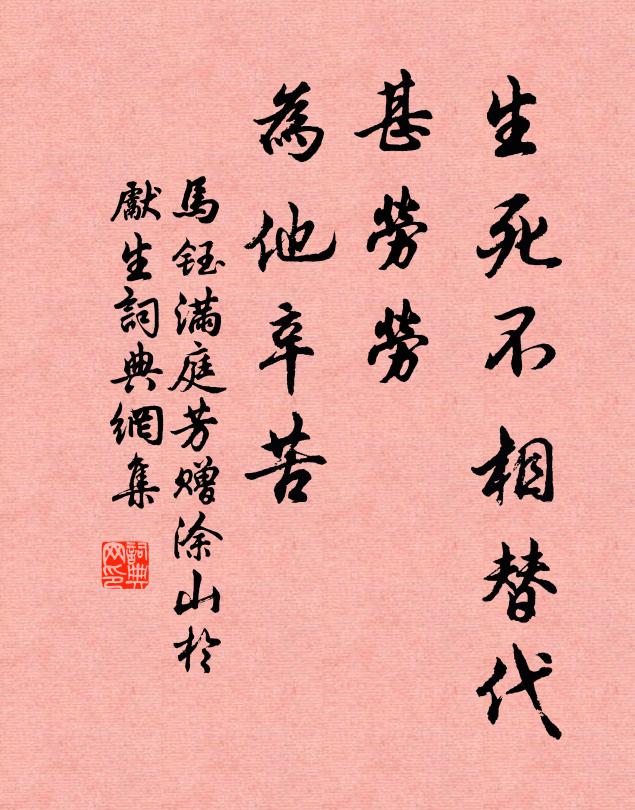 生死不相替代
甚勞勞
為他辛苦
馬鈺滿庭芳贈涂山於
獻生詞典網集
詞典网印